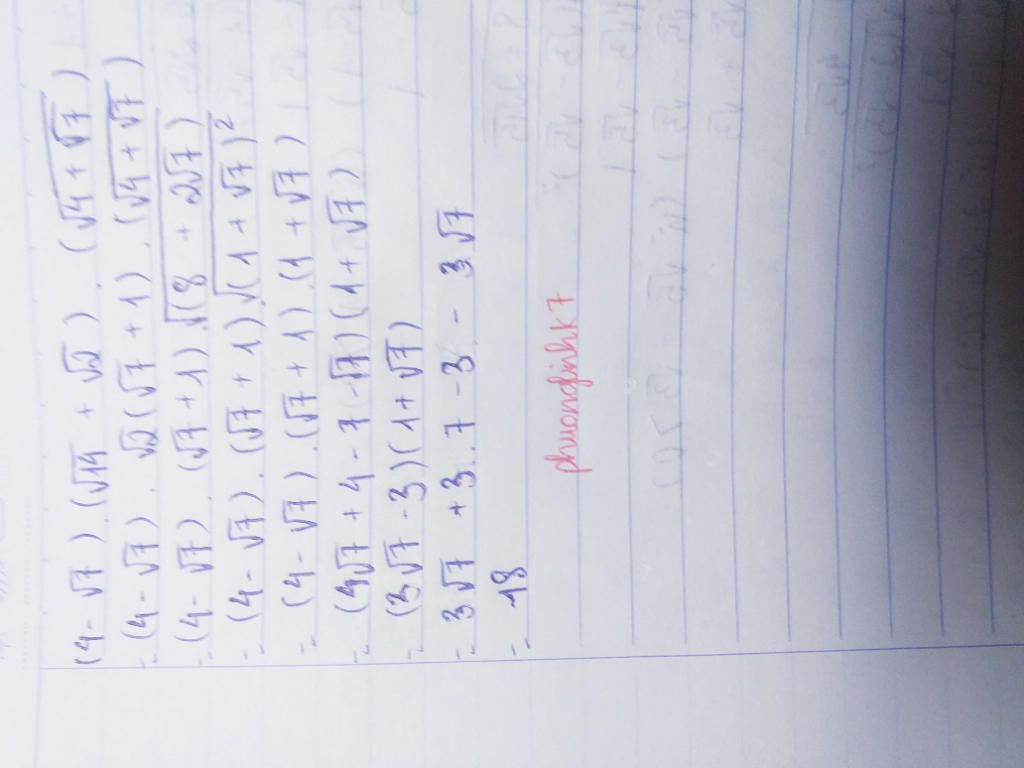 (4 - √7) . (√14 + √2) . (√4 + √7)
= (4 - √7) . √2 (√7 + 1) . (√4 + √7)
= (4 - √7) . (√7 + 1) . √(8 + 2√7)
= (4 - √7) . (√7 + 1) . √(1 + √7)²
= (4 - √7) . (√7 + 1) . (1 + √7)
= (4√7 + 4 - 7 - √7) (1 + √7)
= (3√7 - 3) (1 + √7)
= 3√7 + 3 . 7 - 3 - 3.√7
= 18
phuonglinhk7